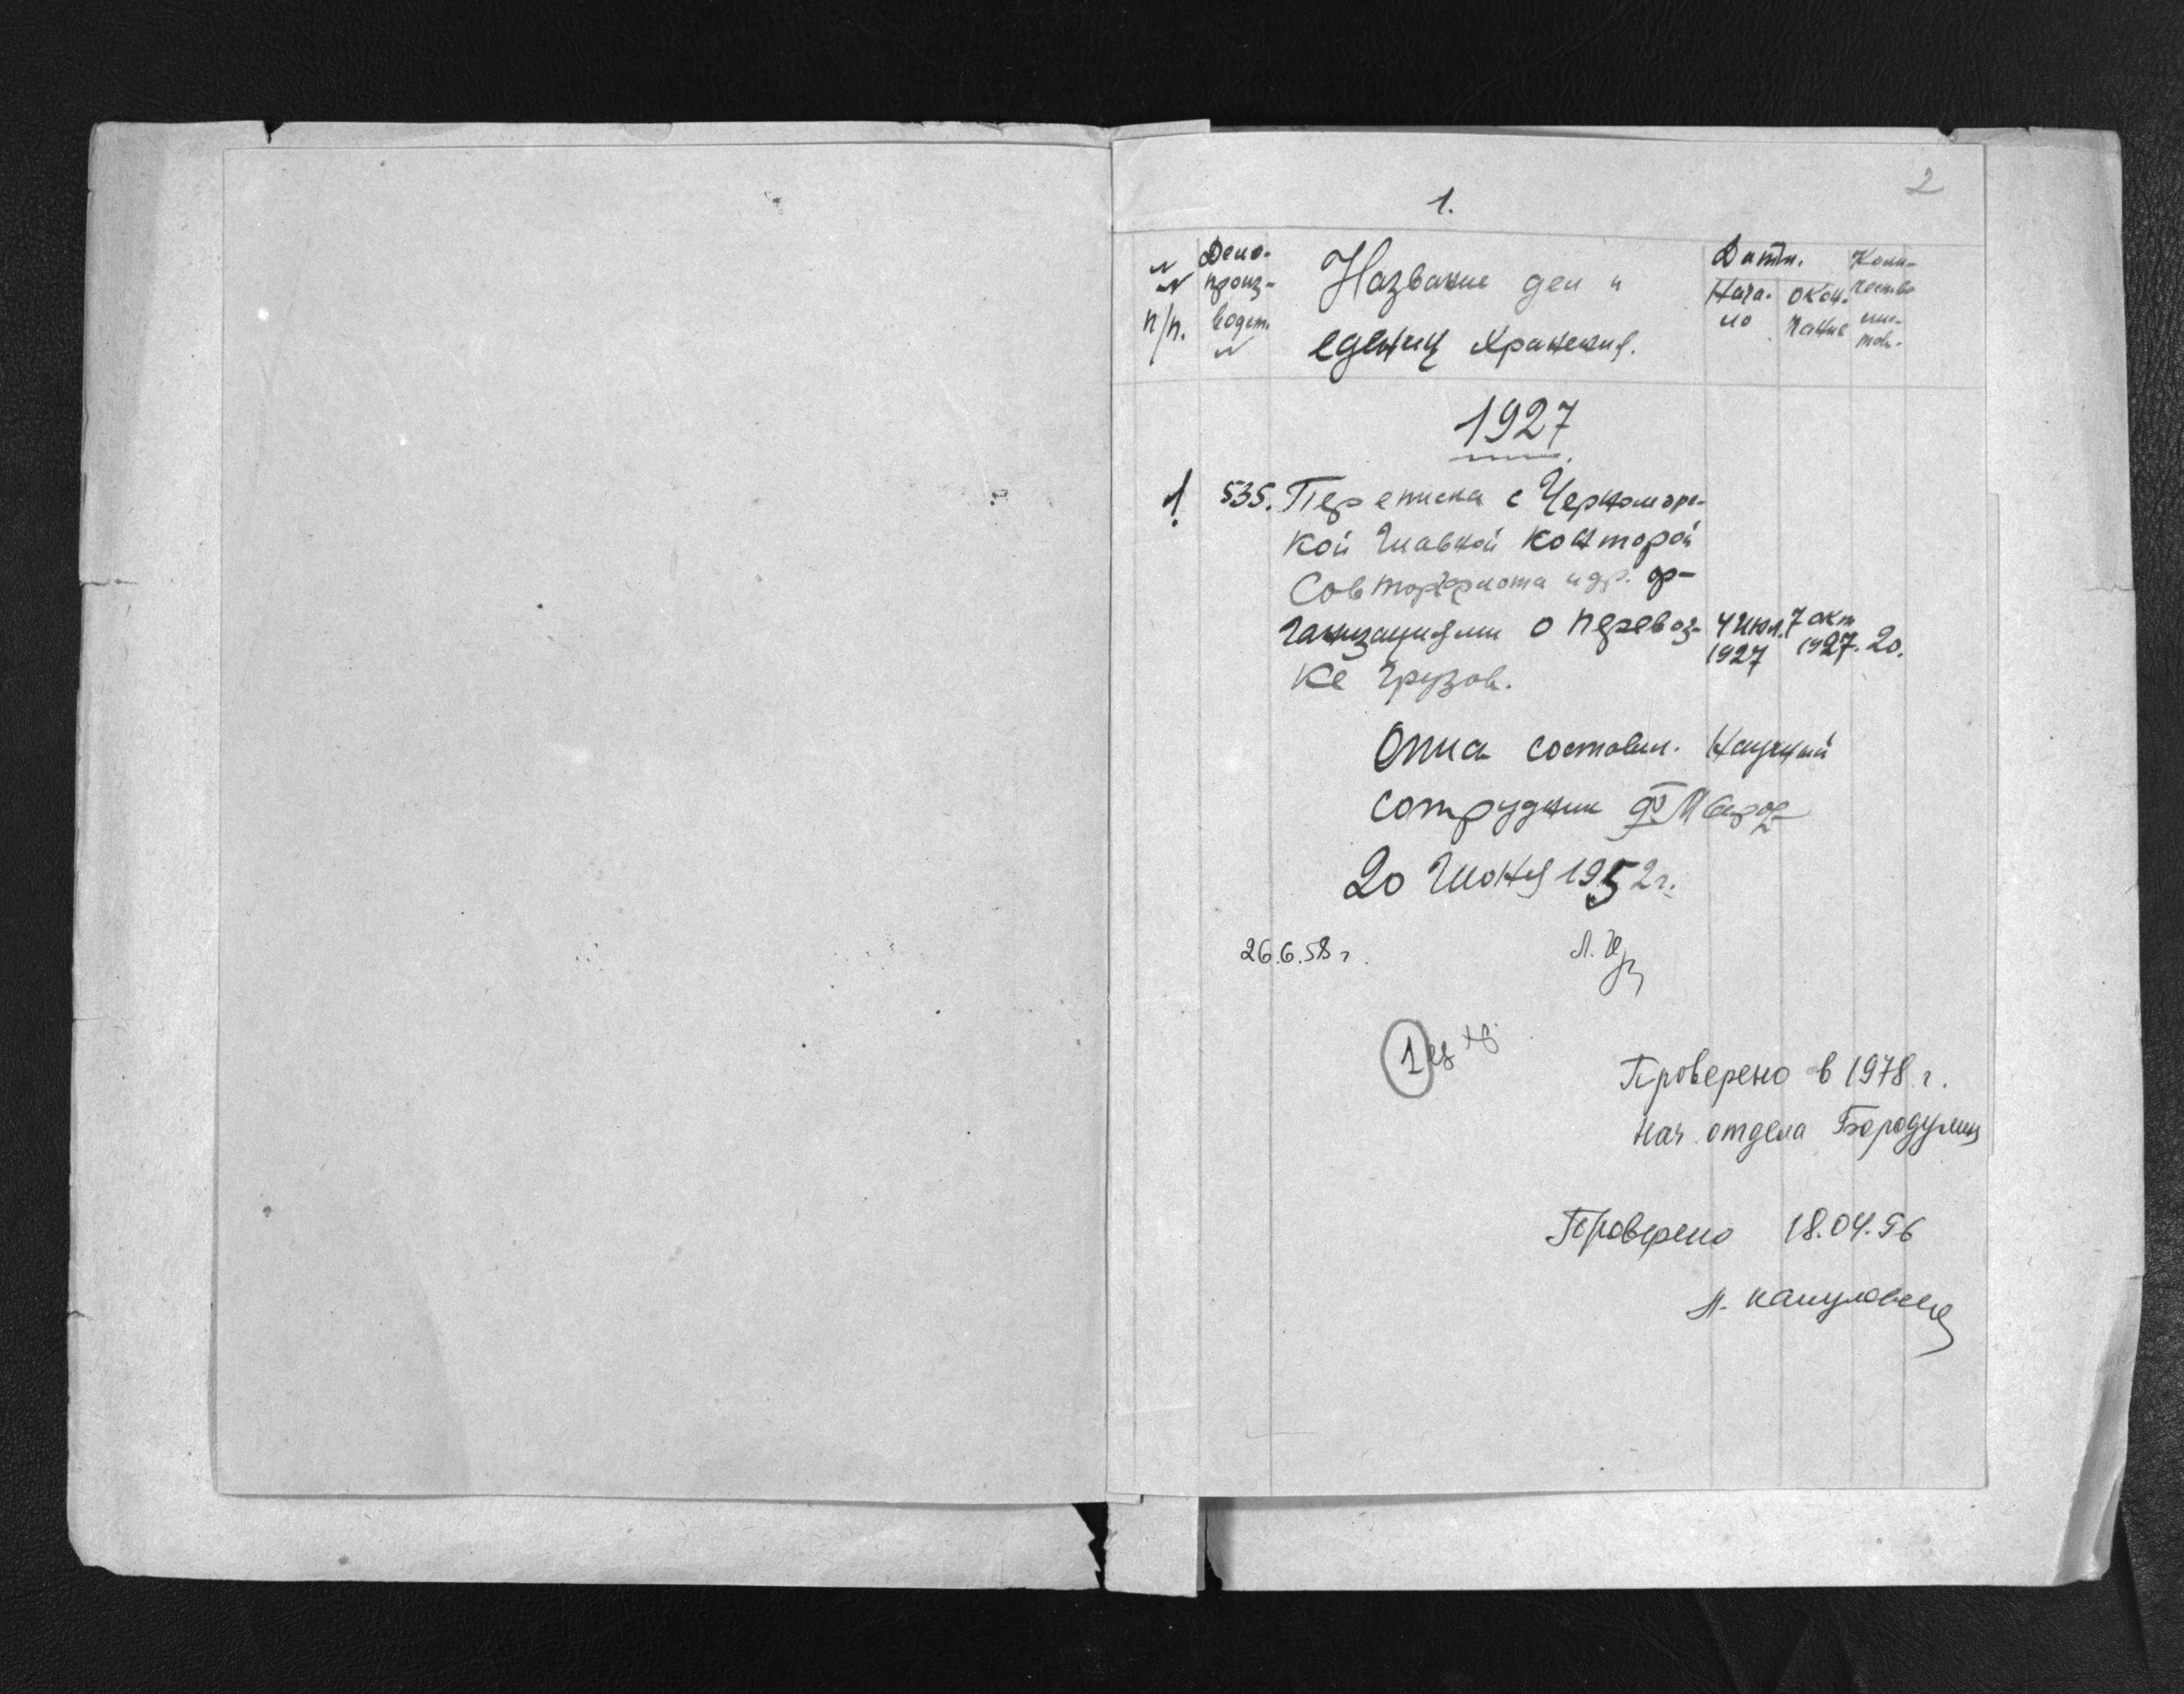 2
1.
№№ п/п.
Дело-
произ-
водст.
№
Название дел и
единиц хранения.
Даты.
Нача-
ло
Окон-
чание
Коли-
чество
лис-
тов.
1927
1. 535. Переписка с Черноморс-
кой Главной Конторой
Совторгфлота и др. ор-
ганизациями о перевоз-
ке грузов.
4 июл.
1927
7 окт
1927. 20.
Опись составил. Научный
сотрудник
20 Июня 1952 г.
26.6.58 г.
1 ед хр
Проверено в 1978 г.
Нач. отдела Бородулин
Проверено 18.04.96